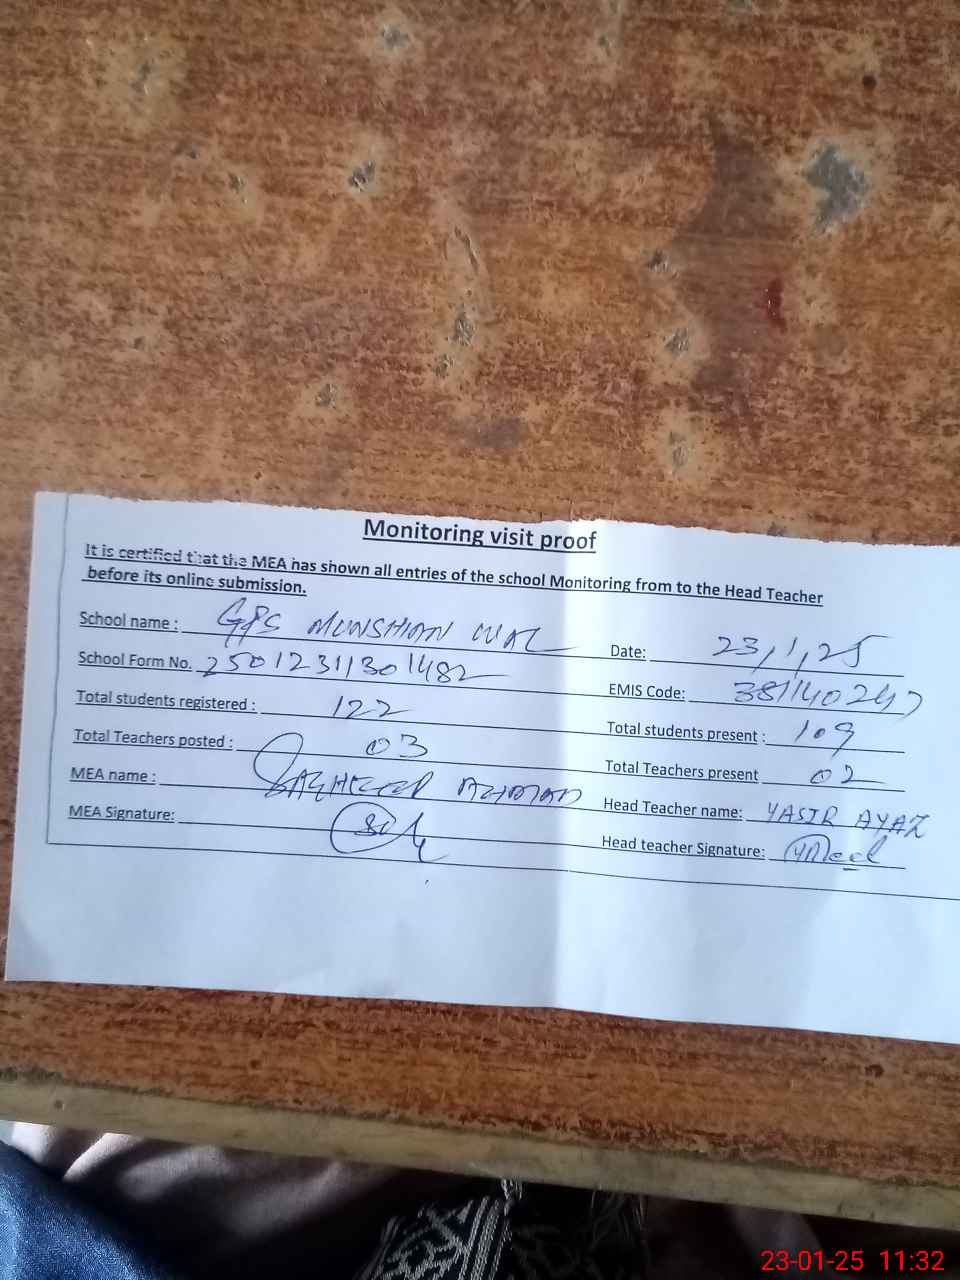 Monitoring visit proof
It is certified that the MEA has shown all entries of the school Monitoring from to the Head Teacher
before its online submission.
School name : GPS MUNSHIAN WAL Date: 23/1/25
School Form No. 2501231130 1482 EMIS Code: 38114024
Total students registered : 122 Total students present : 109
Total Teachers posted : 03 Total Teachers present 02
MEA name : SAGHEER AHMAD Head Teacher name: YASIR AYAZ
MEA Signature: Head teacher Signature:
23-01-25 11:32